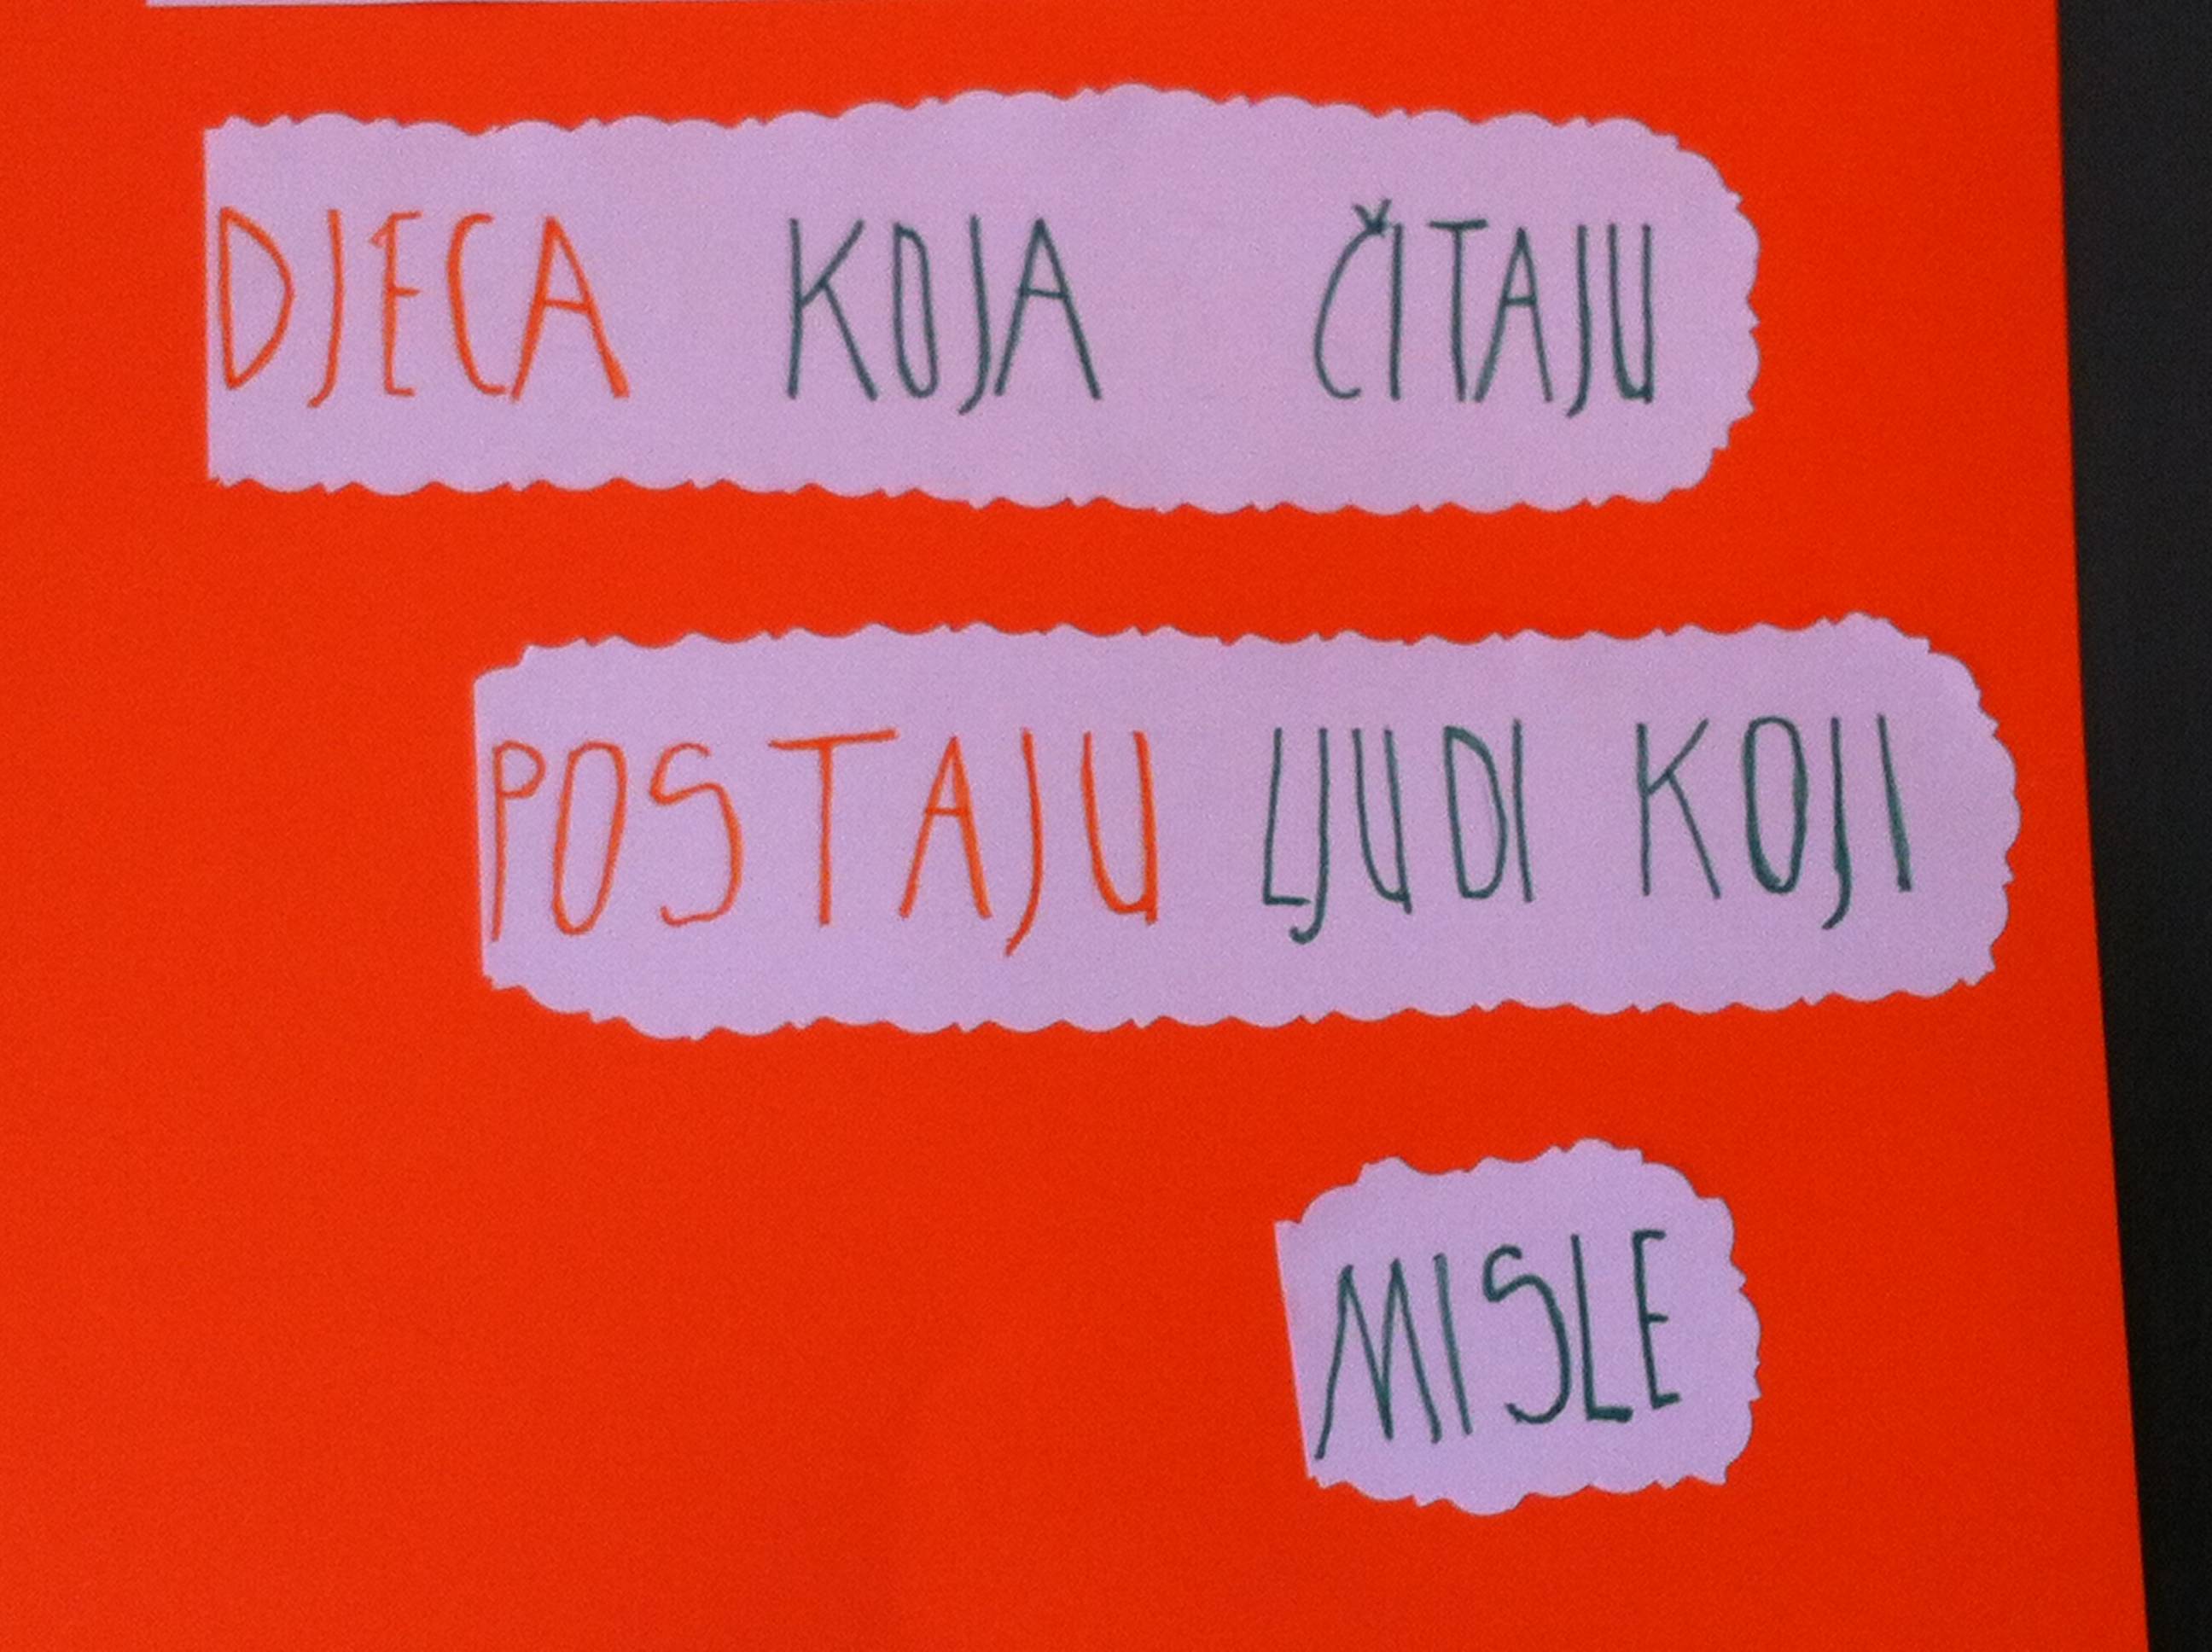 DJECA KOJA ČITAJU
POSTAJU LJUDI KOJI
MISLE